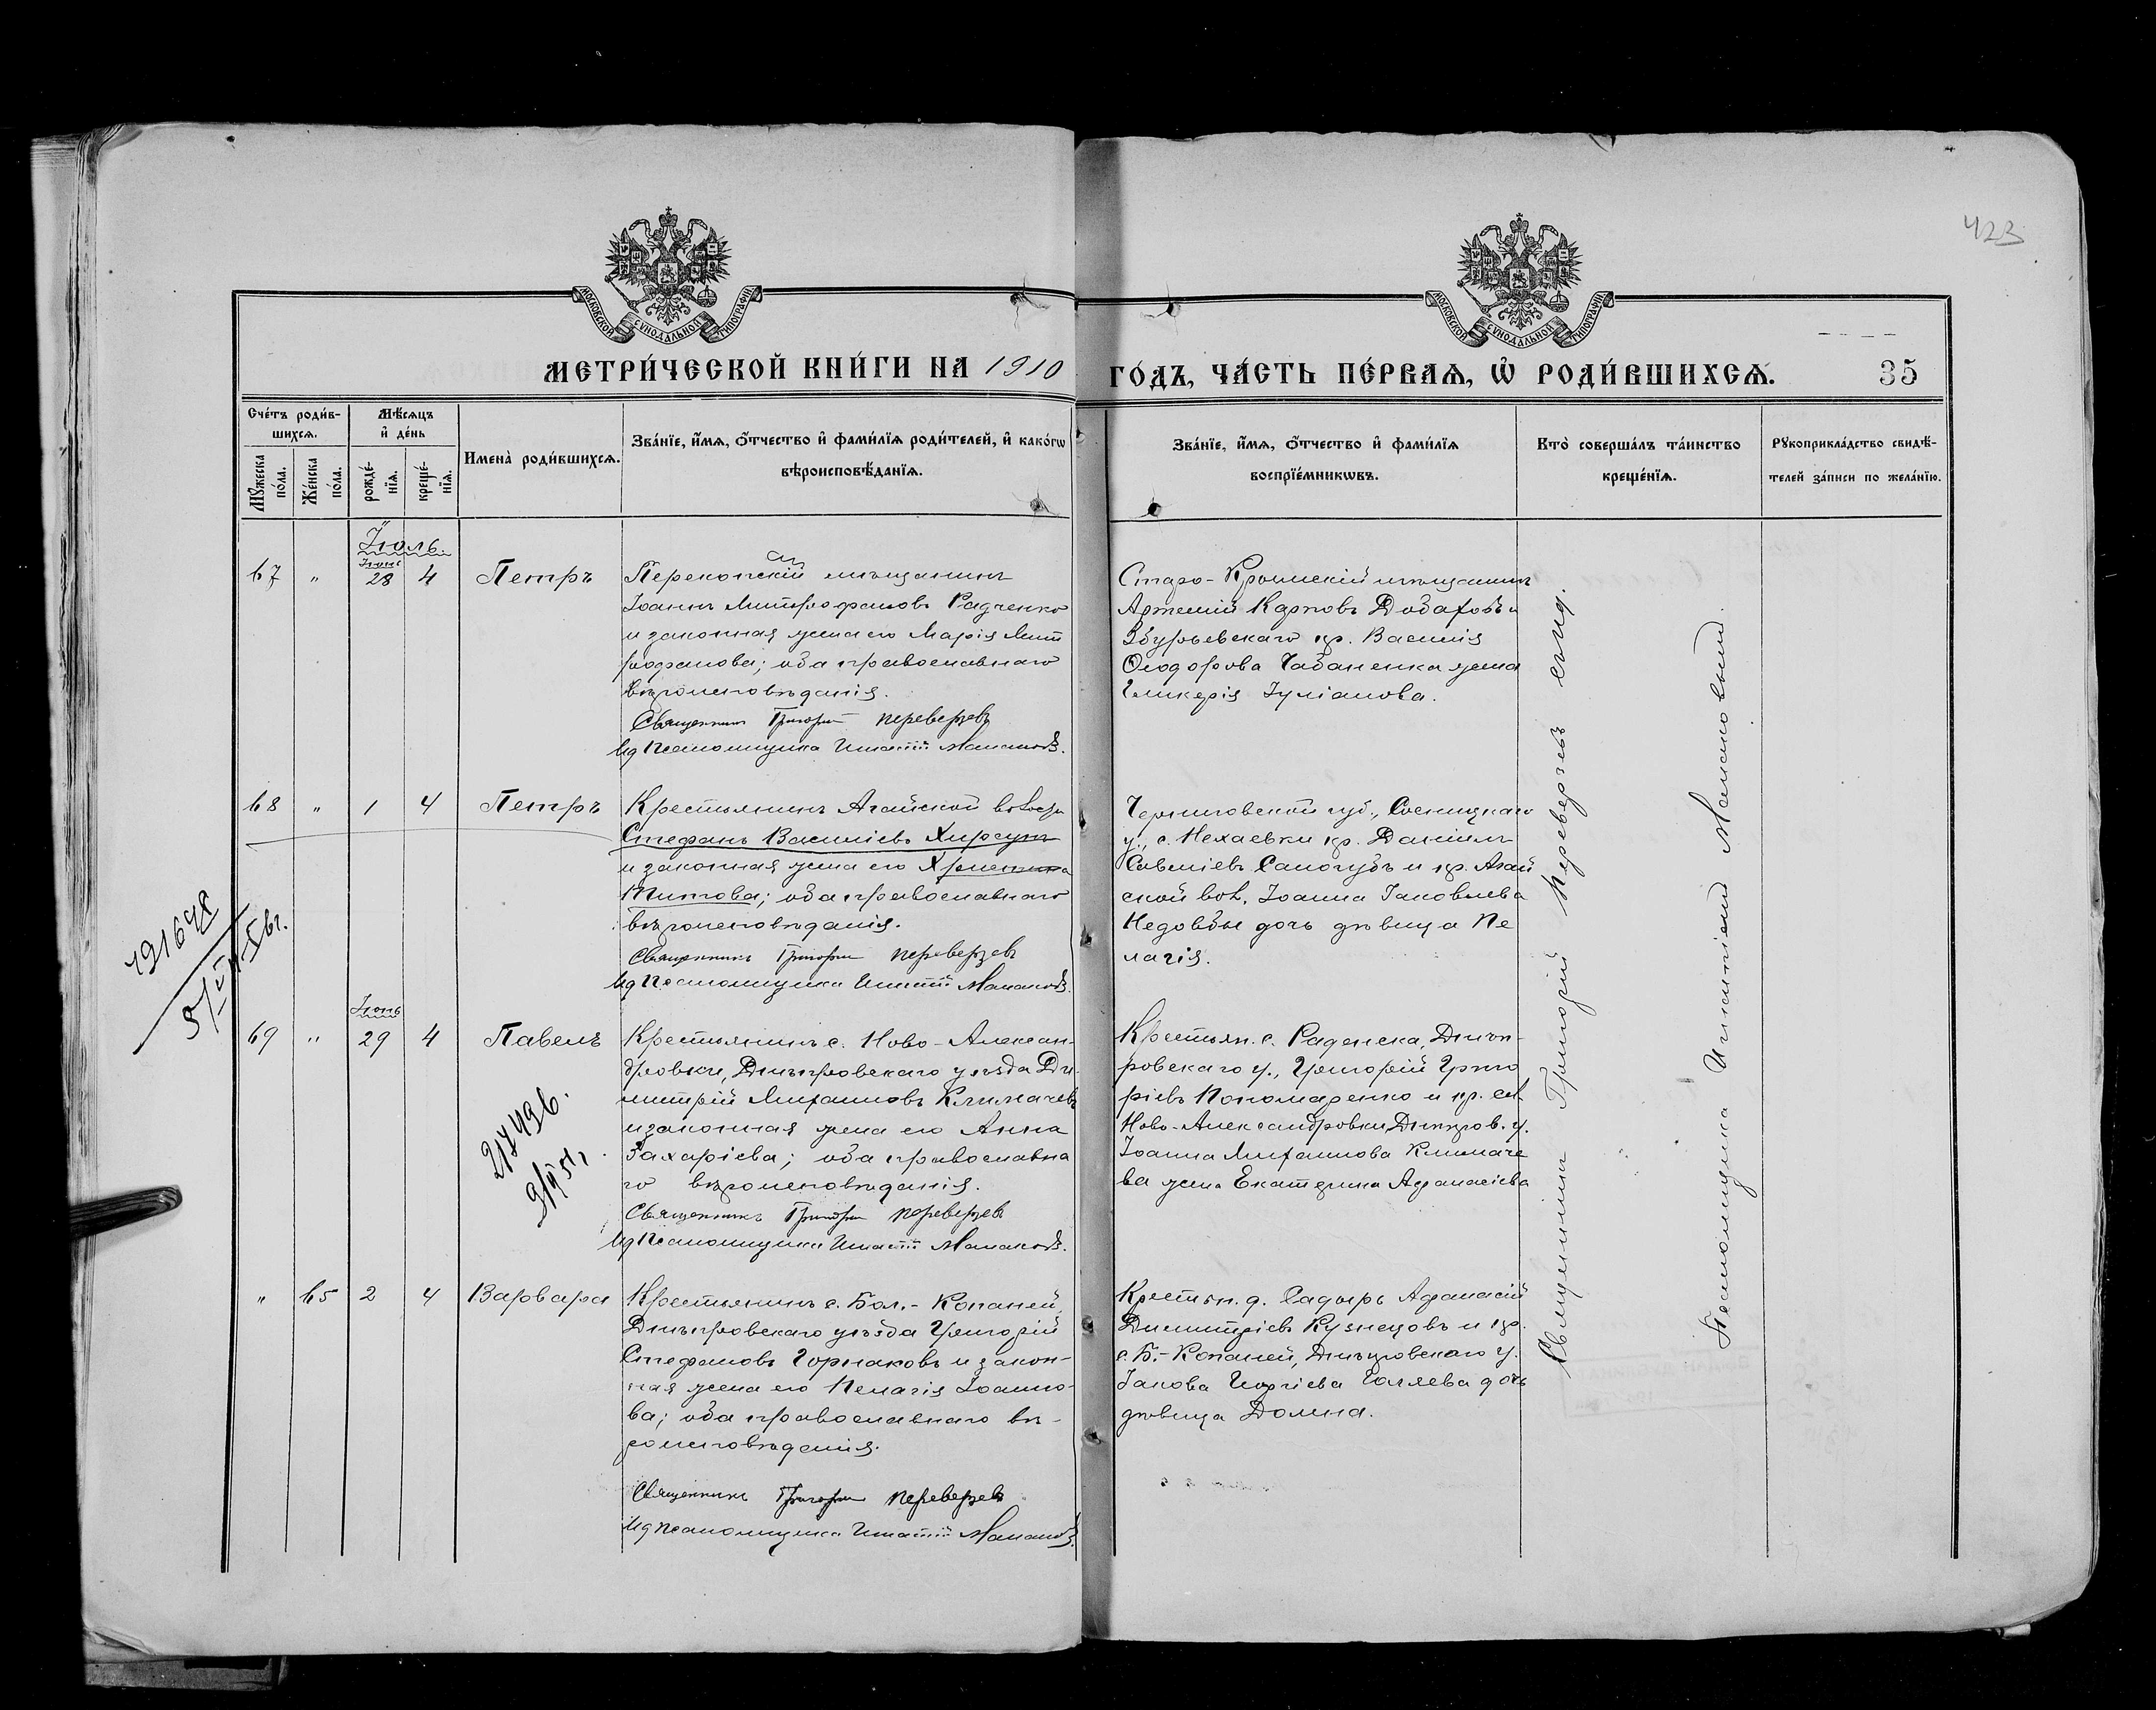 423
МОСКОВСКОЙ СУНОДАЛЬНОЙ ТИПОГРАФІИ
МОСКОВСКОЙ СУНОДАЛЬНОЙ ТИПОГРАФІИ
МЕТРИ́ЧЕСКОЙ КНИ́ГИ НА 1910 ГО́ДЪ, ЧА́СТЬ ПЕ́РВАѦ, Ѡ҆ РОДИ́ВШИХСѦ. 35
Сче́тъ роди́в-
шихсѧ.
Мꙋ́жеска по́ла.
Же́нска по́ла.
Мѣ́сѧцъ
и҆ де́нь
рожде́-
нїѧ.
креще́-
нїѧ.
Имена̀ роди́вшихсѧ.
Зва́нїе, и҆́мѧ, ѻ҆́тчество и҆ фами́лїѧ роди́телей, и҆ како́гѡ
вѣроисповѣ́данїѧ.
Зва́нїе, и҆́мѧ, ѻ҆́тчество и҆ фами́лїѧ
воспрїе́мникѡвъ.
Кто̀ соверша́лъ та́инство
креще́нїѧ.
Рꙋкоприкла́дство свидѣ́-
телей за́писи по жела́нїю.
Іюль.
Іюнь
67 " 28 4 Петръ
Перекопскій мѣщанинъ
Іоаннъ Митрофановъ Радченко
и законная жена его Марія Мит
рофанова; оба православнаго
вѣроисповѣданія.
Священникъ Григорій Переверзевъ
Ид Псаломщика Игнатій Маналовъ.
Старо-Крымскій мѣщанинъ
Артемій Карповъ и
Збурьевскаго кр. Василія
Ѳеодорова Чабаненка жена
Гликерія Іуліанова.
68 " 1 4 Петръ
Крестьянинъ Агайской волости
Стефанъ Василіевъ Хирсунъ
и законная жена его Христина
Титова; оба православнаго
вѣроисповѣданія.
Священникъ Григорій Переверзевъ
Ид Псаломщика Игнатій Маналовъ.
Черниговской губ., Сосницкаго
у., с. Нехаевки кр. Даніилъ
Савеліевъ Самогубъ и кр. Агай
ской вол. Іоанна Іаковлева
Недовбы дочь дѣвица Пе
лагія.
191648
Іюнь
69 " 29 4 Павелъ
Крестьянинъ с. Ново-Алексан-
дровки, Днѣпровскаго уѣзда Ди-
митрій Михаиловъ Климачевъ
и законная жена его Анна
Захаріева; оба православна
го вѣроисповѣданія.
Священникъ Григорій Переверзевъ
Ид Псаломщика Игнатій Маналовъ.
Крестьян. с. Раденска, Днѣп-
ровскаго у., Григорій Григо
ріевъ Пономаренко и кр. сел.
Ново-Александровки, Днѣпров. у.
Іоанна Михаилова Климаче
ва жена Екатерина Аѳанасіева
" 65 2 4 Варвара
Крестьянинъ с. Бол.-Копаней,
Днѣпровскаго уѣзда Григорій
Стефановъ Горпаковъ и закон-
ная жена его Пелагія Іоанно-
ва; оба православнаго вѣ-
роисповѣданія.
Священникъ Григорій Переверзевъ
Ид псаломщика Игнатій Маналовъ.
Крестьян. д. Садыръ Аѳанасій
Димитріевъ Кузнецовъ и кр.
с. Б.-Копаней, Днѣпровскаго у.
Іакова Георгіева Галяева дочь
дѣвица Домна.
Священникъ Григорій Переверзевъ съ ид.
Псаломщика Игнатіемъ